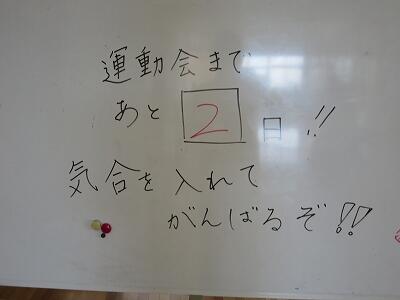 運動会まで
あと 2 日!!
気合を入れて
がんばるぞ!!